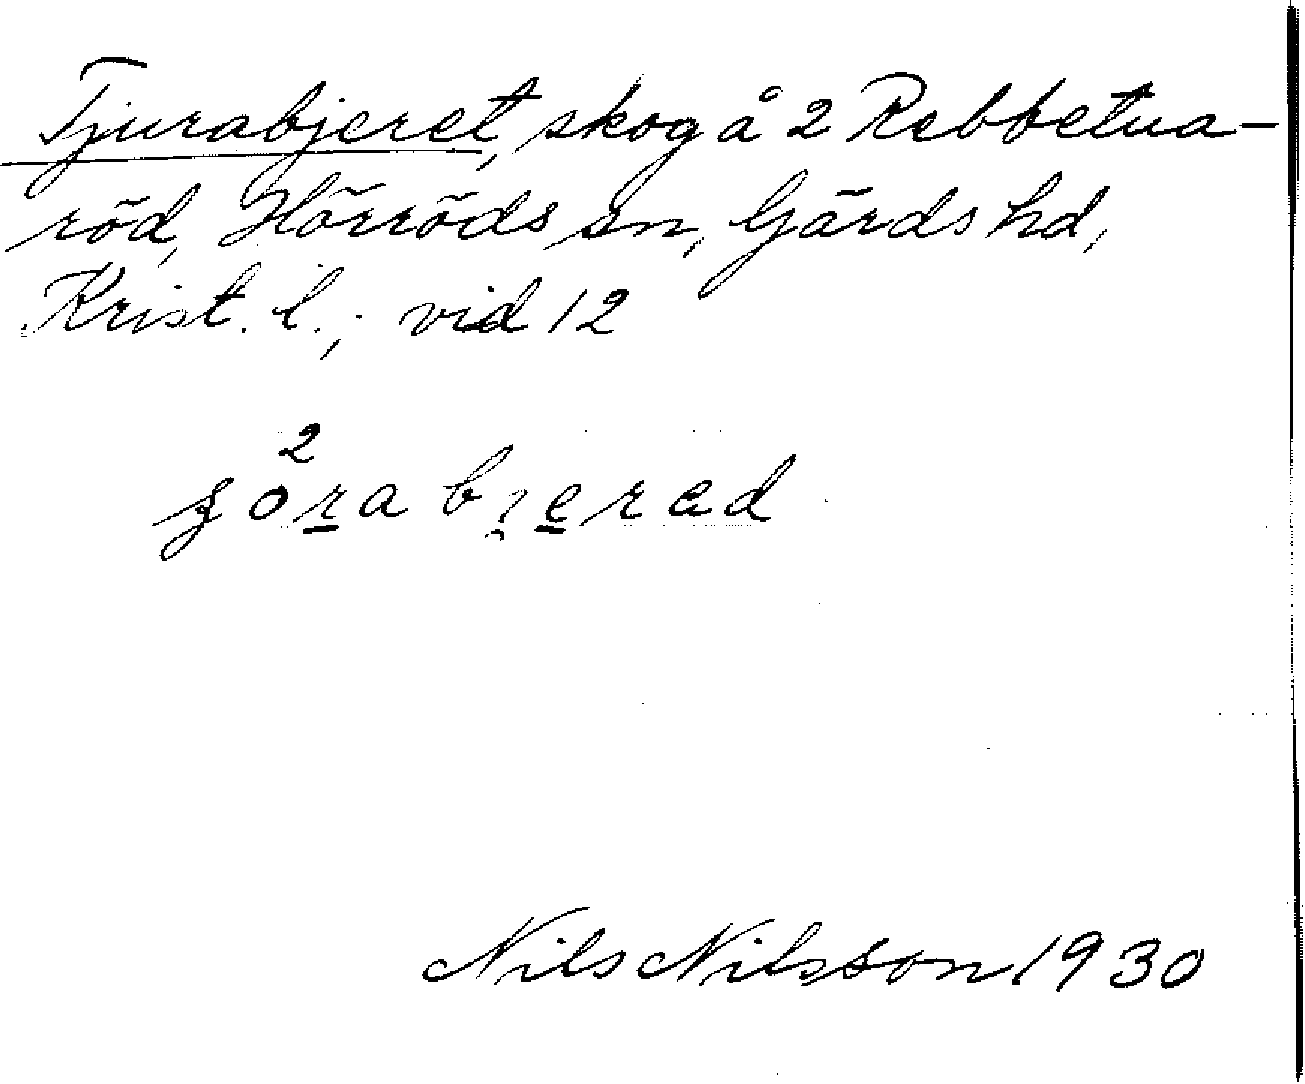 Tjurabjeret, skog å 2 Rebbetua-
röd, Hörröds sn, Gärds hd,
Krist. l.; vid 12
Nils Nilsson 1930